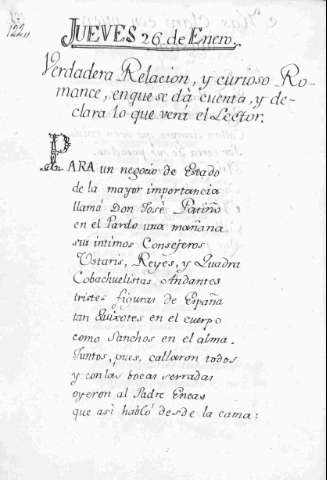 122,,
JUEVES 26 de Enero,
Verdadera Relacion, y curioso Ro-
mance, en que se dà cuenta, y de-
clara lo que verá el Lector.
PARA un negocio de Estado
de la mayor importancia
llamó Don Josè Patiño
en el Pardo una mañana
sus intimos Consejeros
Ustariz, Reyes, y Quadra
Cobachuelistas Andantes
tristes figuras de España
tan Quixotes en el cuerpo
como Sanchos en el alma.
Juntos, pues, callaron todos
y con las bocas serradas
oyeron al Padre Eneas
que asi habló desde la cama: